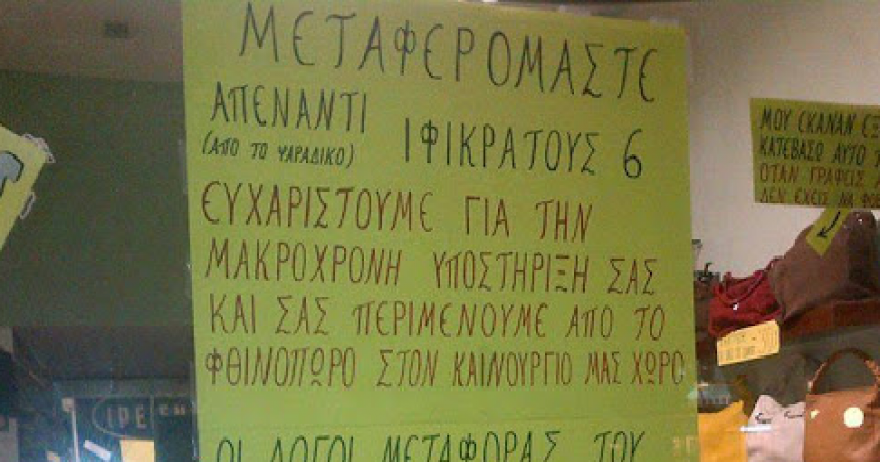 ΜΕΤΑΦΕΡΟΜΑΣΤΕ
ΑΠΕΝΑΝΤΙ
(ΑΠΟ ΤΟ ΨΑΡΑΔΙΚΟ) ΙΦΙΚΡΑΤΟΥΣ 6
ΕΥΧΑΡΙΣΤΟΥΜΕ ΓΙΑ ΤΗΝ
ΜΑΚΡΟΧΡΟΝΗ ΥΠΟΣΤΗΡΙΞΗ ΣΑΣ
ΚΑΙ ΣΑΣ ΠΕΡΙΜΕΝΟΥΜΕ ΑΠΟ ΤΟ
ΦΘΙΝΟΠΩΡΟ ΣΤΟΝ ΚΑΙΝΟΥΡΓΙΟ ΜΑΣ ΧΩΡΟ
ΟΙ ΛΟΓΟΙ ΜΕΤΑΦΟΡΑΣ ΤΟΥ
ΜΟΥ ΕΚΑΝΑΝ
ΚΑΤΕΒΑΣΩ ΑΥΤΟ
ΟΤΑΝ ΓΡΑΦΕΙΣ
ΔΕΝ ΕΧΕΙΣ ΝΑ